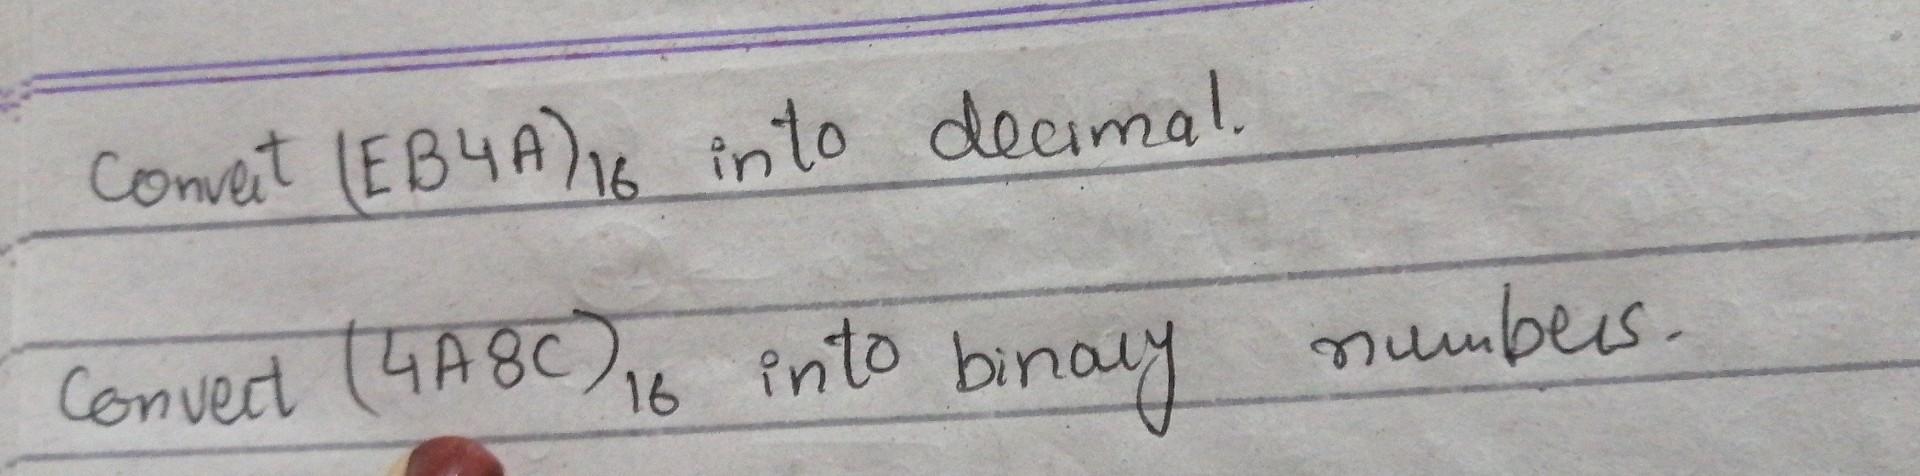 Convert (EB4A)16 into decimal.
Convert (4A8C)16 into binary numbers.